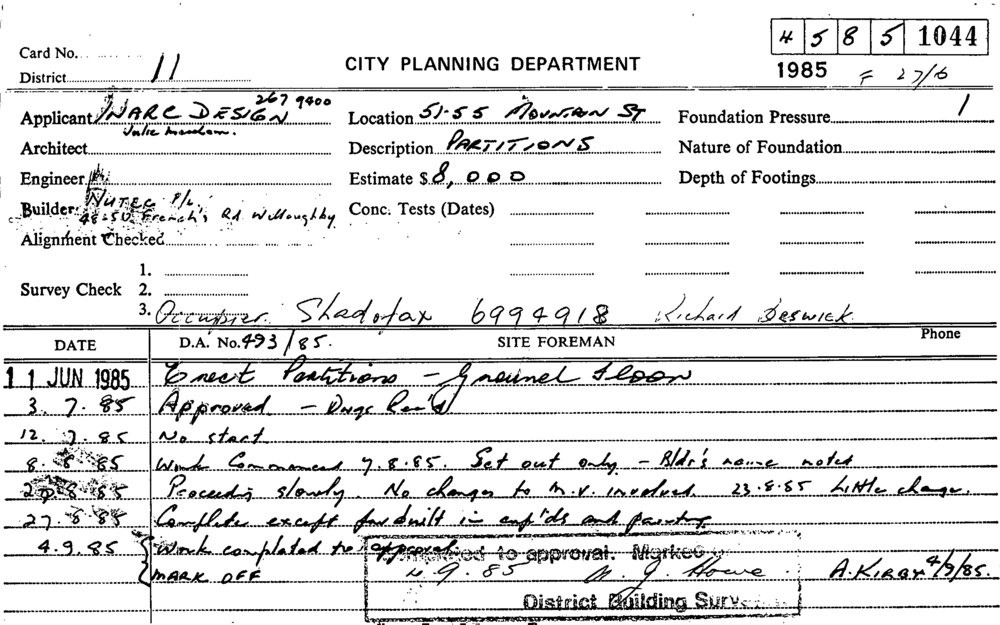 4 5 8 5 1044
Card No.
District 11
CITY PLANNING DEPARTMENT
1985 F 27/6
267 9400
Applicant NARC DESIGN
Location 51-55 MOUNTAIN ST
Foundation Pressure 1
Julie
Architect
Description PARTITIONS
Nature of Foundation
Engineer
Estimate $ 8,000
Depth of Footings
Builder NUTEC P/L
48-50 French's Rd Willoughby
Conc. Tests (Dates)
Alignment Checked
Survey Check
1.
2.
3. Occupier. Shadofax 6994918 Richard Beswick
DATE D.A. No. 493/85. SITE FOREMAN Phone
11 JUN 1985 Erect Partitions - Ground Floor
3. 7. 85 Approved - Dwgs Rec'd
12. 7. 85 No start
8. 8. 85 Work Commenced 7.8.85. Set out only - Bldr's name noted
20.8.85 Proceeding slowly. No changes to M.V. involved. 23.8.85 Little change.
27.8.85 Complete except for built in cup'ds and painting
4.9.85 Work completed to approval
MARK OFF
to approval. Marked
4.9.85 Howe A. KIRBY 4/9/85.
District Building Surv